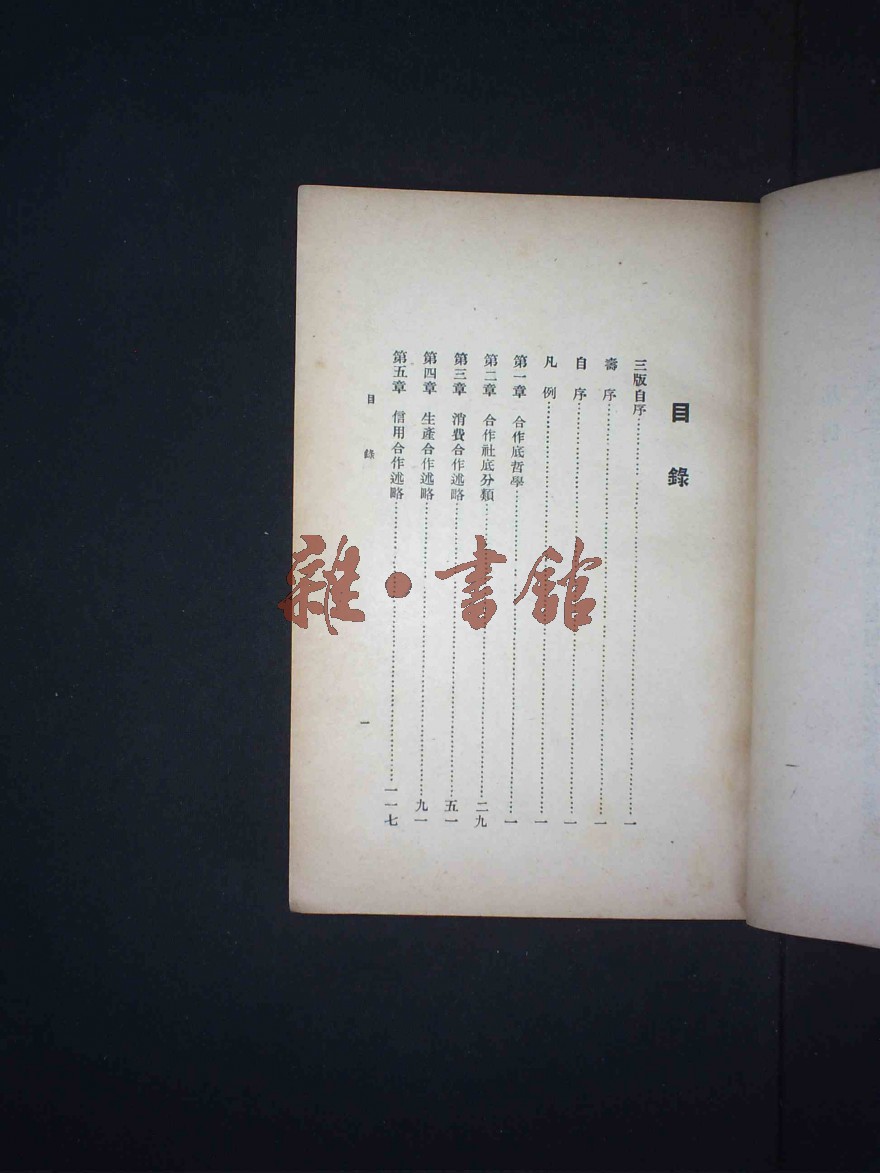 目錄
三版自序……………………一
壽序……………………一
自序……………………一
凡例……………………一
第一章 合作底哲學……………………一
第二章 合作社底分類……………………二九
第三章 消費合作述略……………………五一
第四章 生產合作述略……………………九一
第五章 信用合作述略……………………一一七
目錄 一
雜·書館